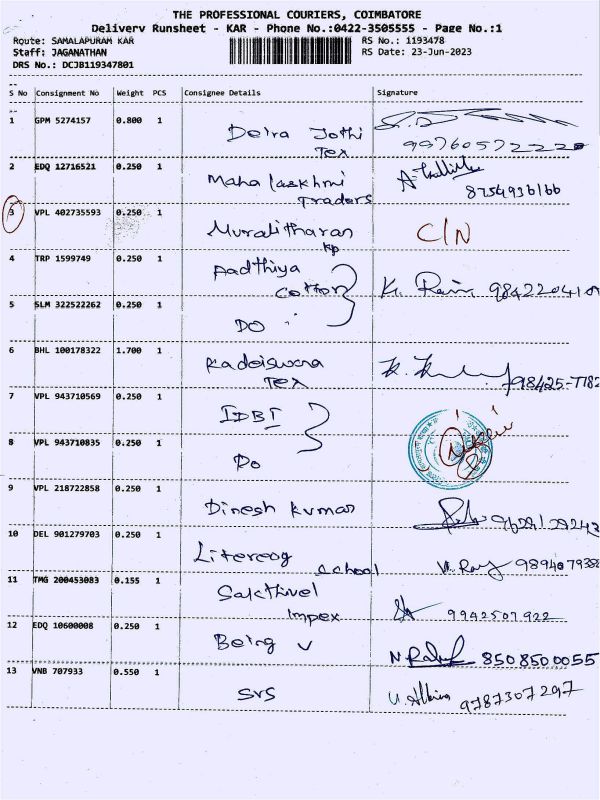 THE PROFESSIONAL COURIERS, COIMBATORE
Delivery Runsheet - KAR - Phone No.:0422-3505555 - Page No.:1
Route: SAMALAPURAM KAR RS No.: 1193478
Staff: JAGANATHAN RS Date: 23-Jun-2023
DRS No.: DCJB119347801
S No Consignment No Weight PCS Consignee Details Signature
1 GPM 5274157 0.800 1
Deira Jothi
Tex
2 EDQ 12716521 0.250 1
Maha laskhmi 8754936166
Traders
3 VPL 402735593 0.250 1
Muralitharan C/N
KP
4 TRP 1599749 0.250 1
Aadthiya
Cotton K. Ram
5 SLM 322522262 0.250 1
DO
6 BHL 100178322 1.700 1
Kadeiswara
Tex
7 VPL 943710569 0.250 1
IDBI
8 VPL 943710835 0.250 1
Do
9 VPL 218722858 0.250 1
Dinesh kumar
10 DEL 901279703 0.250 1
school
11 TMG 200453083 0.155 1
Sakthivel
Impex 9942507922
12 EDQ 10600008 0.250 1
Being v
8508500055
13 VNB 707933 0.550 1
SVS 9787307297